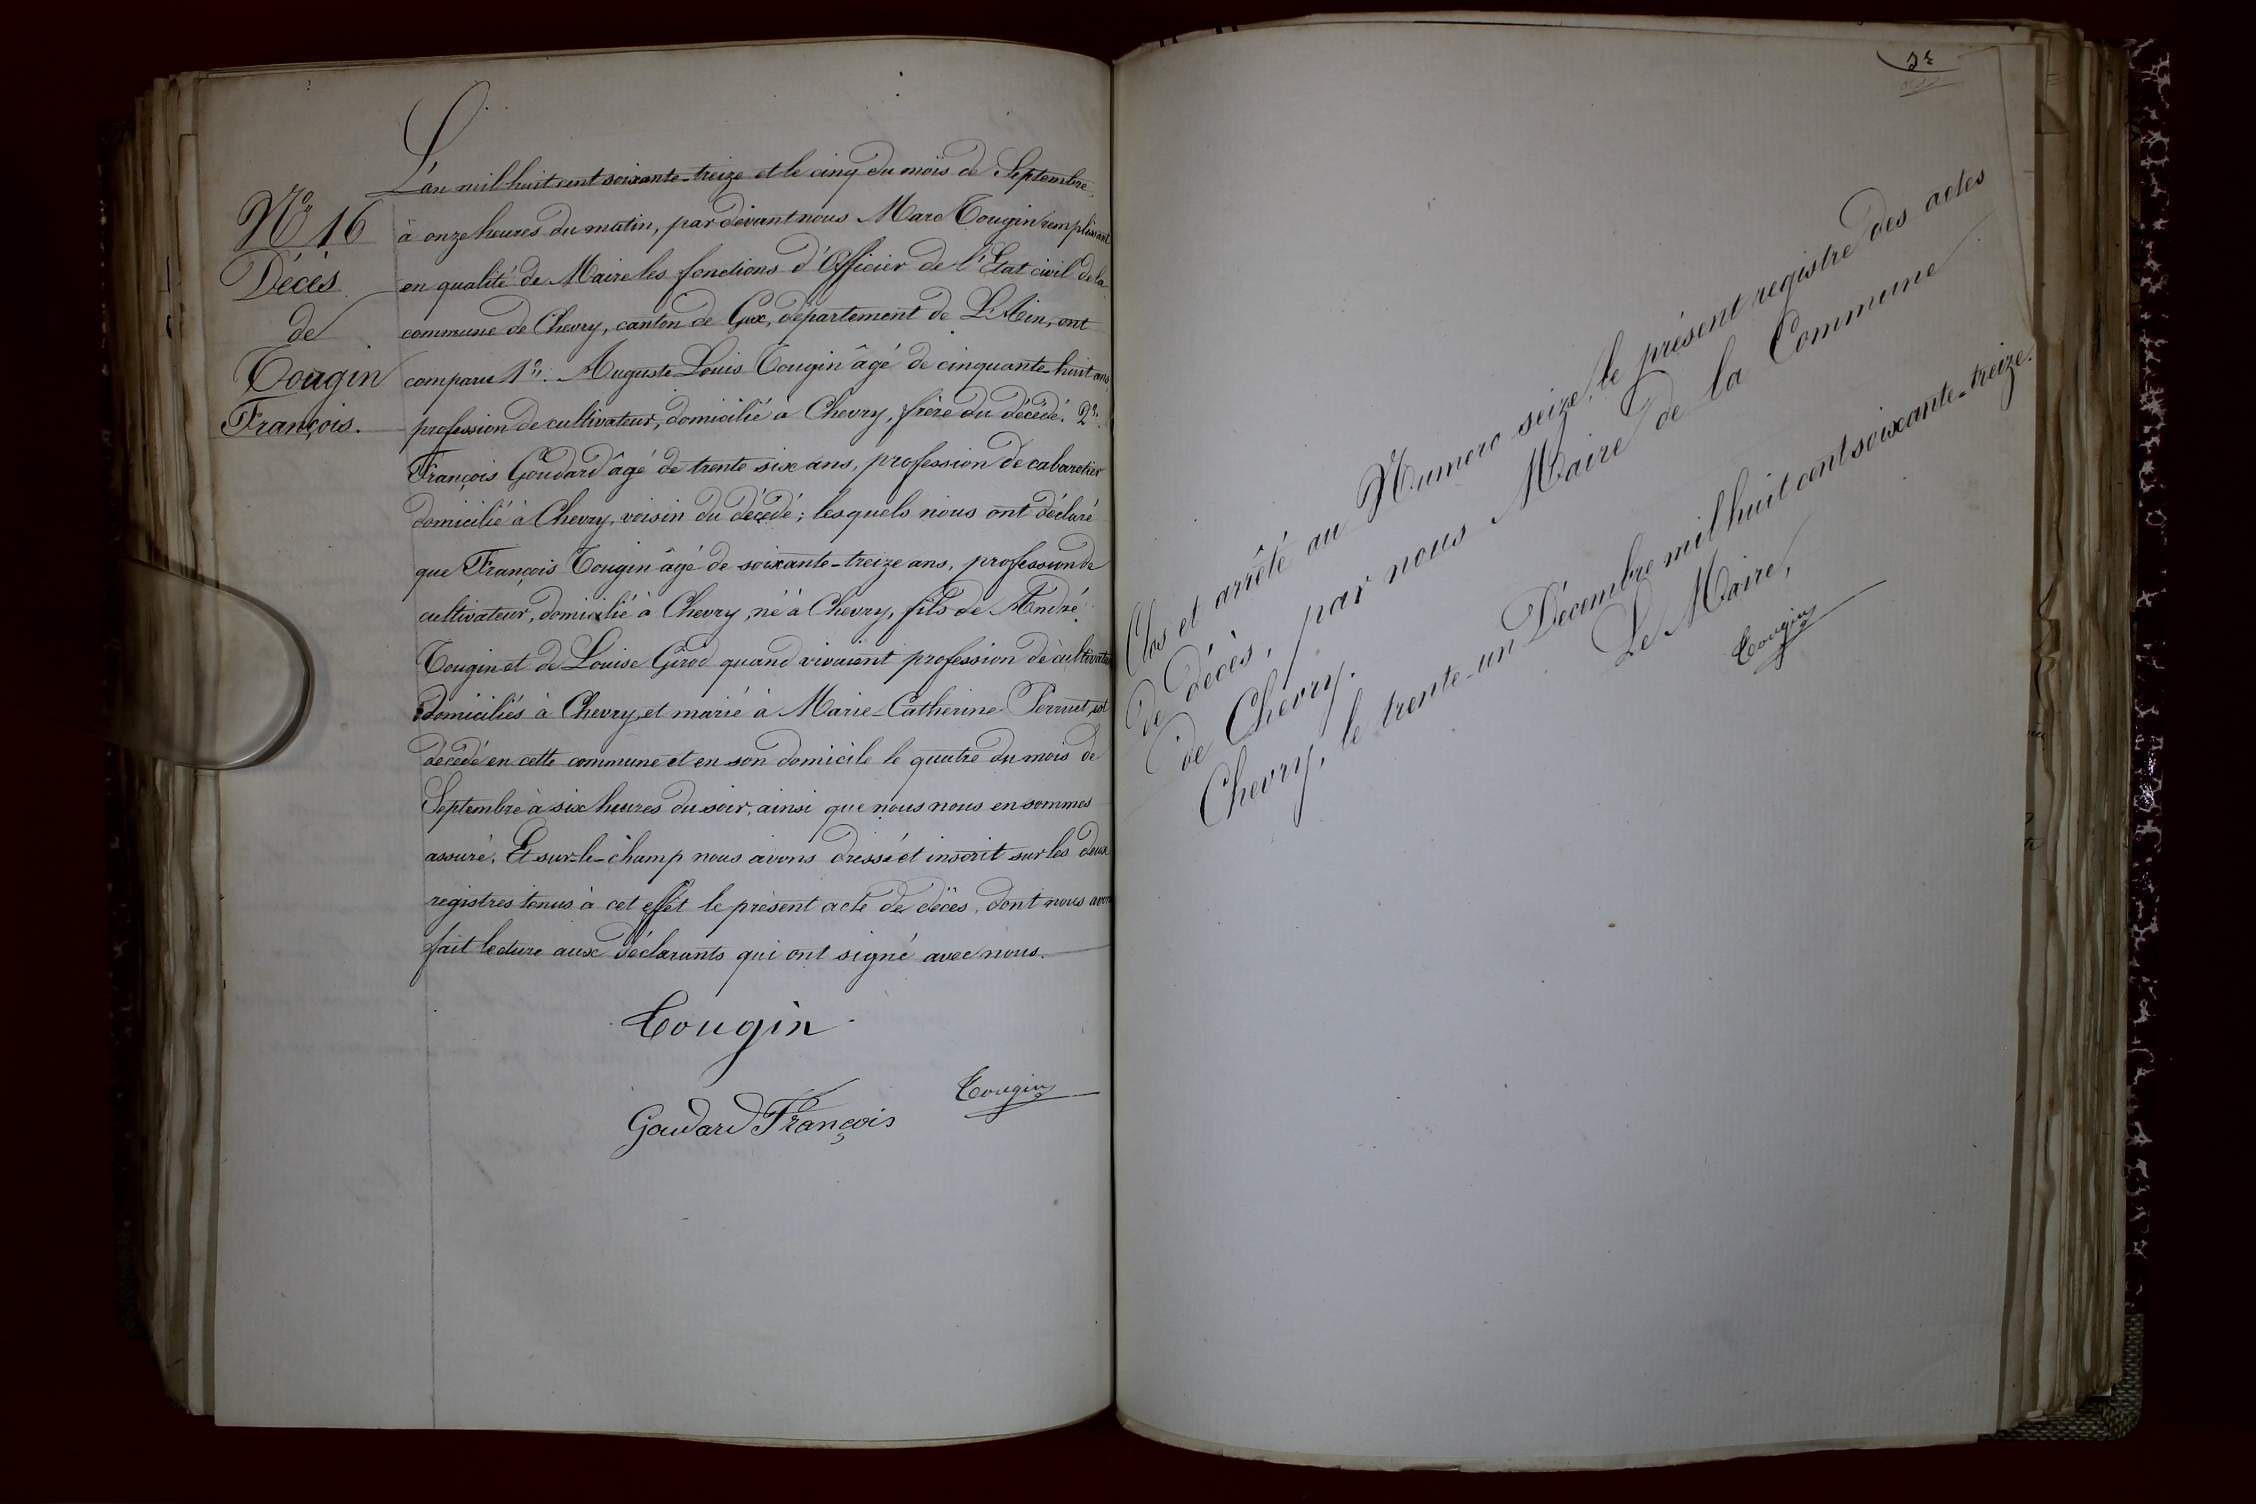 N° 16
Décès
de
Tougin
François.
L'an mil huit cent soixante-treize et le cinq du mois de Septembre,
à onze heures du matin, par devant nous Marc Tougin remplissant
en qualité de Maire les fonctions d'Officier de l'Etat civil de la
commune de Chevry, canton de Gex, département de L'Ain, ont
comparu 1°. Auguste Louis Tougin âgé de cinquante-huit ans
profession de cultivateur, domicilié à Chevry, frère du décédé. 2°.
François Goudard âgé de trente six ans, profession de cabaretier
domicilié à Chevry, voisin du décédé; lesquels nous ont déclaré
que François Tougin âgé de soixante-treize ans, profession de
cultivateur, domicilié à Chevry, né à Chevry, fils de André
Tougin et de Louise Girod quand vivaient profession de cultivateurs
domiciliés à Chevry, et marié à Marie-Catherine Perrut, est
décédé en cette commune et en son domicile le quatre du mois de
Septembre à six heures du soir, ainsi que nous nous en sommes
assuré. Et sur-le-champ nous avons dressé et inscrit sur les deux
registres tenus à cet effet le présent acte de décès, dont nous avons
fait lecture aux déclarants qui ont signé avec nous.
Tougin
Tougin
Goudard François
Clos et arrêté au Numero seize, le présent registre des actes
de décès, par nous Maire de la Commune
de Chevry.
Chevry, le trente-un Décembre mil huit cent soixante-treize.
Le Maire,
Tougin